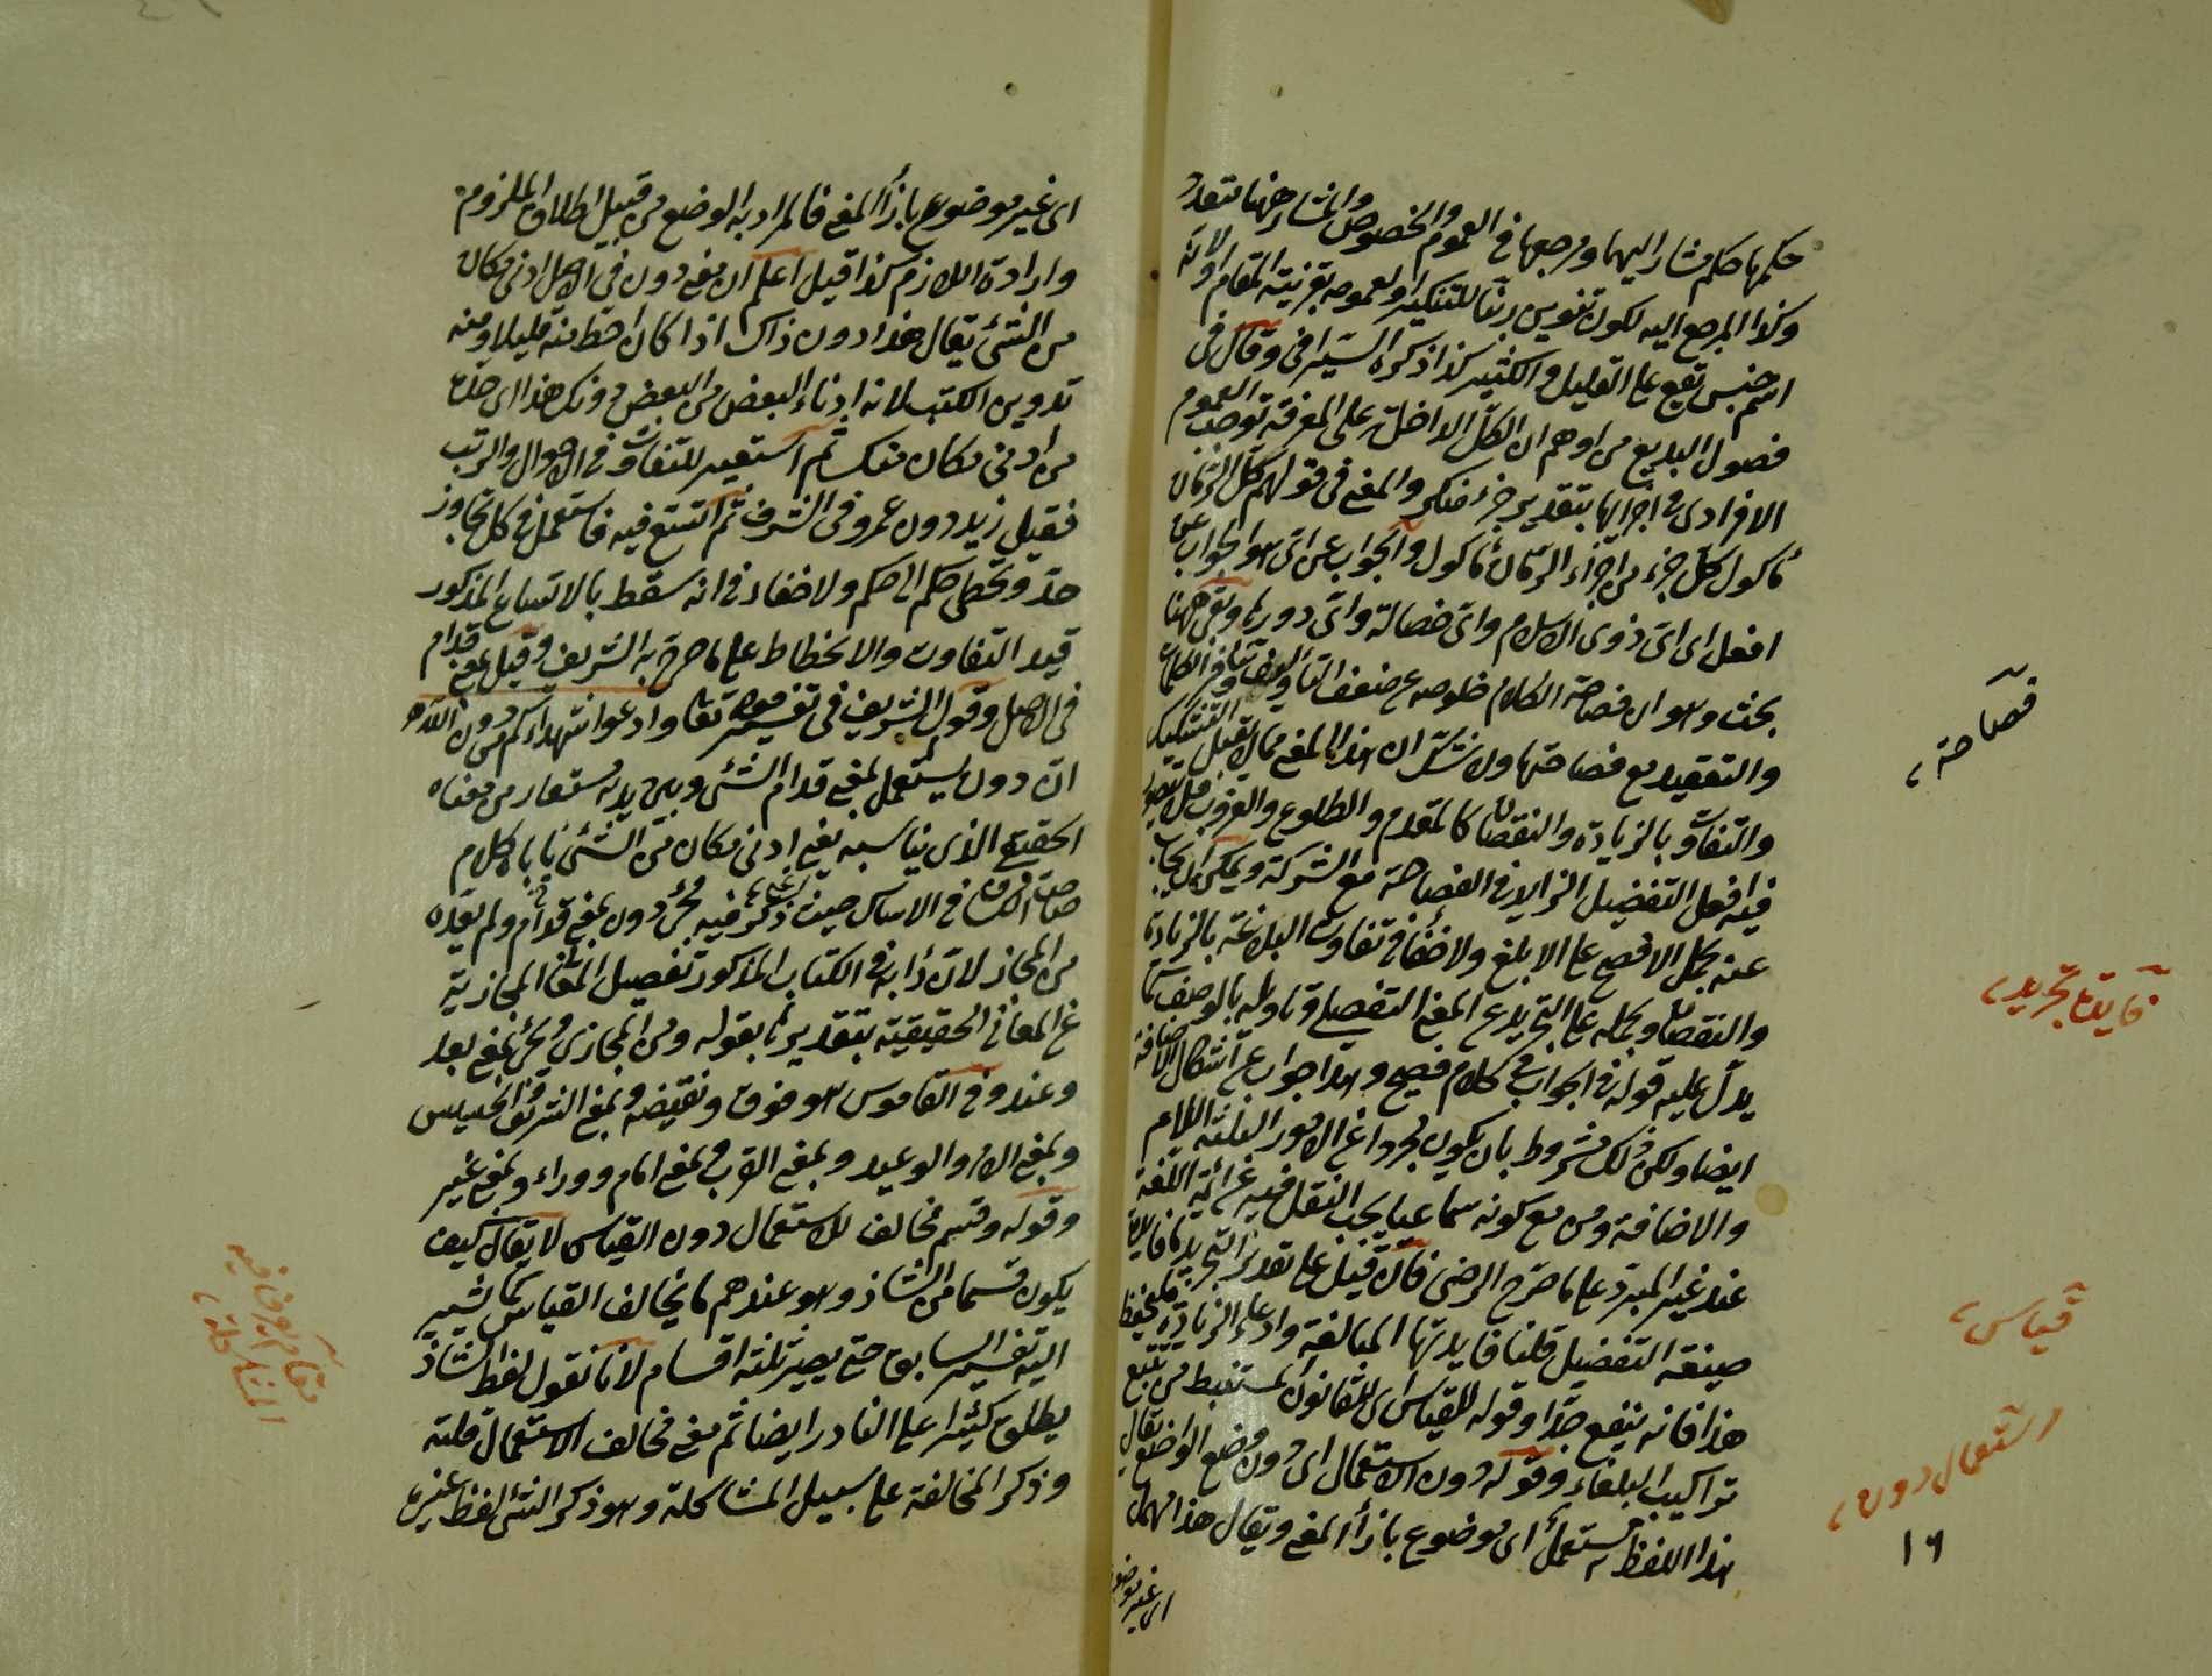 حكمها حكم مشار اليهما ومرجعها في العموم والخصوص والمشار ههنا متعدد
وكذا المرجع اليه لكون تنوين ربنا للتنكير او لعمومه بقرينة المقام اولانه
اسم جنس تقع على القليل والكثير كذا ذكره السيرافي وقال في
فصول البديع من اوهم ان الكل الداخل على المعرفة توجب العموم
الافرادي في اجزائها بتقدير جزء منكر والمعنى في قولهم كل الرمان
مأكول كل جزء من اجزاء الرمان مأكول والجواب عن اي هو الجواب عن
افعل اي اي ذوي الاسلام واي خصاله واي دورها وبقي ههنا
بحث وهو ان فصاحة الكلام خلوصه عن ضعف التأليف وتنافر الكلمات
والتعقيد مع فصاحتها ولا شك ان هذا المعنى مما لا يقبل التشكيك
والتفاوت بالزيادة والنقصان كالمتقدم والطلوع والغروب فلا يتصور
فيه افعل التفضيل الزايد في الفصاحة مع الشركة ويمكن ان يجاب
عنه بحمل الافصح على الابلغ ولا خفاء في تفاوت البلاغة بالزيادة
والنقصان وبحمله على التجريد عن المعنى التفضيلي وتأويله بالوصف كما
يدل عليه قوله في الجواب في كلام فصيح وهذا جواب عن اشكال الاضافة
ايضا ولكن ذلك مشروط بان يكون مجردا عن الامور الثلثة اللام
والاضافة ومن مع كونه سماعيا يجب النقل فيه عن ائمة اللغة
عند غير المبرد على ما صرح الرضي فان قيل على تقدير التجريد ما فايدة
صيغة التفضيل قلنا فايدتها المبالغة وادعاء الزيادة فليحفظ
هذا فانه ينفع جدا وقوله للقياس اي للقانون المستنبط من تتبع
تراكيب البلغاء وقوله دون الاستعمال اي دون وضع الواضع يقال
هذا اللفظ مستعمل اي موضوع بازاء المعنى ويقال هذا مهمل
اي غير موضوع
فصاحة
فايدة تجريد
قياس
استعمال دون
١٦
اي غير موضوع بازاء المعنى فالمراد به الوضع من قبيل اطلاق الملزوم
وارادة اللازم كذا قيل اعلم ان معنى دون في الاصل ادنى مكان
من الشئ يقال هذا دون ذاك اذا كان احط منه قليلا ومنه
تدوين الكتب لانه ادناء البعض من البعض ودونك هذا اي خذه
من ادنى مكان منك ثم استعير للتفاوت في الاحوال والرتب
فقيل زيد دون عمرو في الشرف ثم اتسع فيه فاستعمل في كل تجاوز
حد وتخطي حكم الى حكم ولا خفاء في انه سقط بالاتساع المذكور
قيد التفاوت والانحطاط على ما صرح به الشريف وقيل بمعنى قدام
في الاصل وقول الشريف في تفسير قوله تعا وادعوا شهداءكم من دون الله
ان دون يستعمل بمعنى قدام الشئ وبين يديه مستعار من معناه
الحقيقي الذي يناسبه يعنى ادنى مكان من الشئ يأباه كلام
صاحب الكشاف في الاساس حيث ذكر فيه مجئ دون بمعنى قدام ولم يعده
من المجاز لان دأبه في الكتاب المذكور تفصيل المعاني المجازية
عن المعاني الحقيقية بتقديرها بقوله ومن المجازي ويجئ بمعنى بعد
وعند وفي القاموس هو فوق ونقيضه وبمعنى الشريف والخسيس
وبمعنى الامر والوعيد وبمعنى القرب وبمعنى امام ووراء وبمعنى غير
وقوله وقسم مخالف للاستعمال دون القياس لا يقال كيف
يكون قسما من الشاذ وهو عندهم ما يخالف القياس كما يشير
اليه تفسير السابق حتى يصير ثلثة اقسام لانا نقول لفظ الشاذ
يطلق كثيرا على النادر ايضا ثم معنى مخالف الاستعمال قلته
وذكر المخالفة على سبيل المشاكلة وهو ذكر الشئ بلفظ غيره